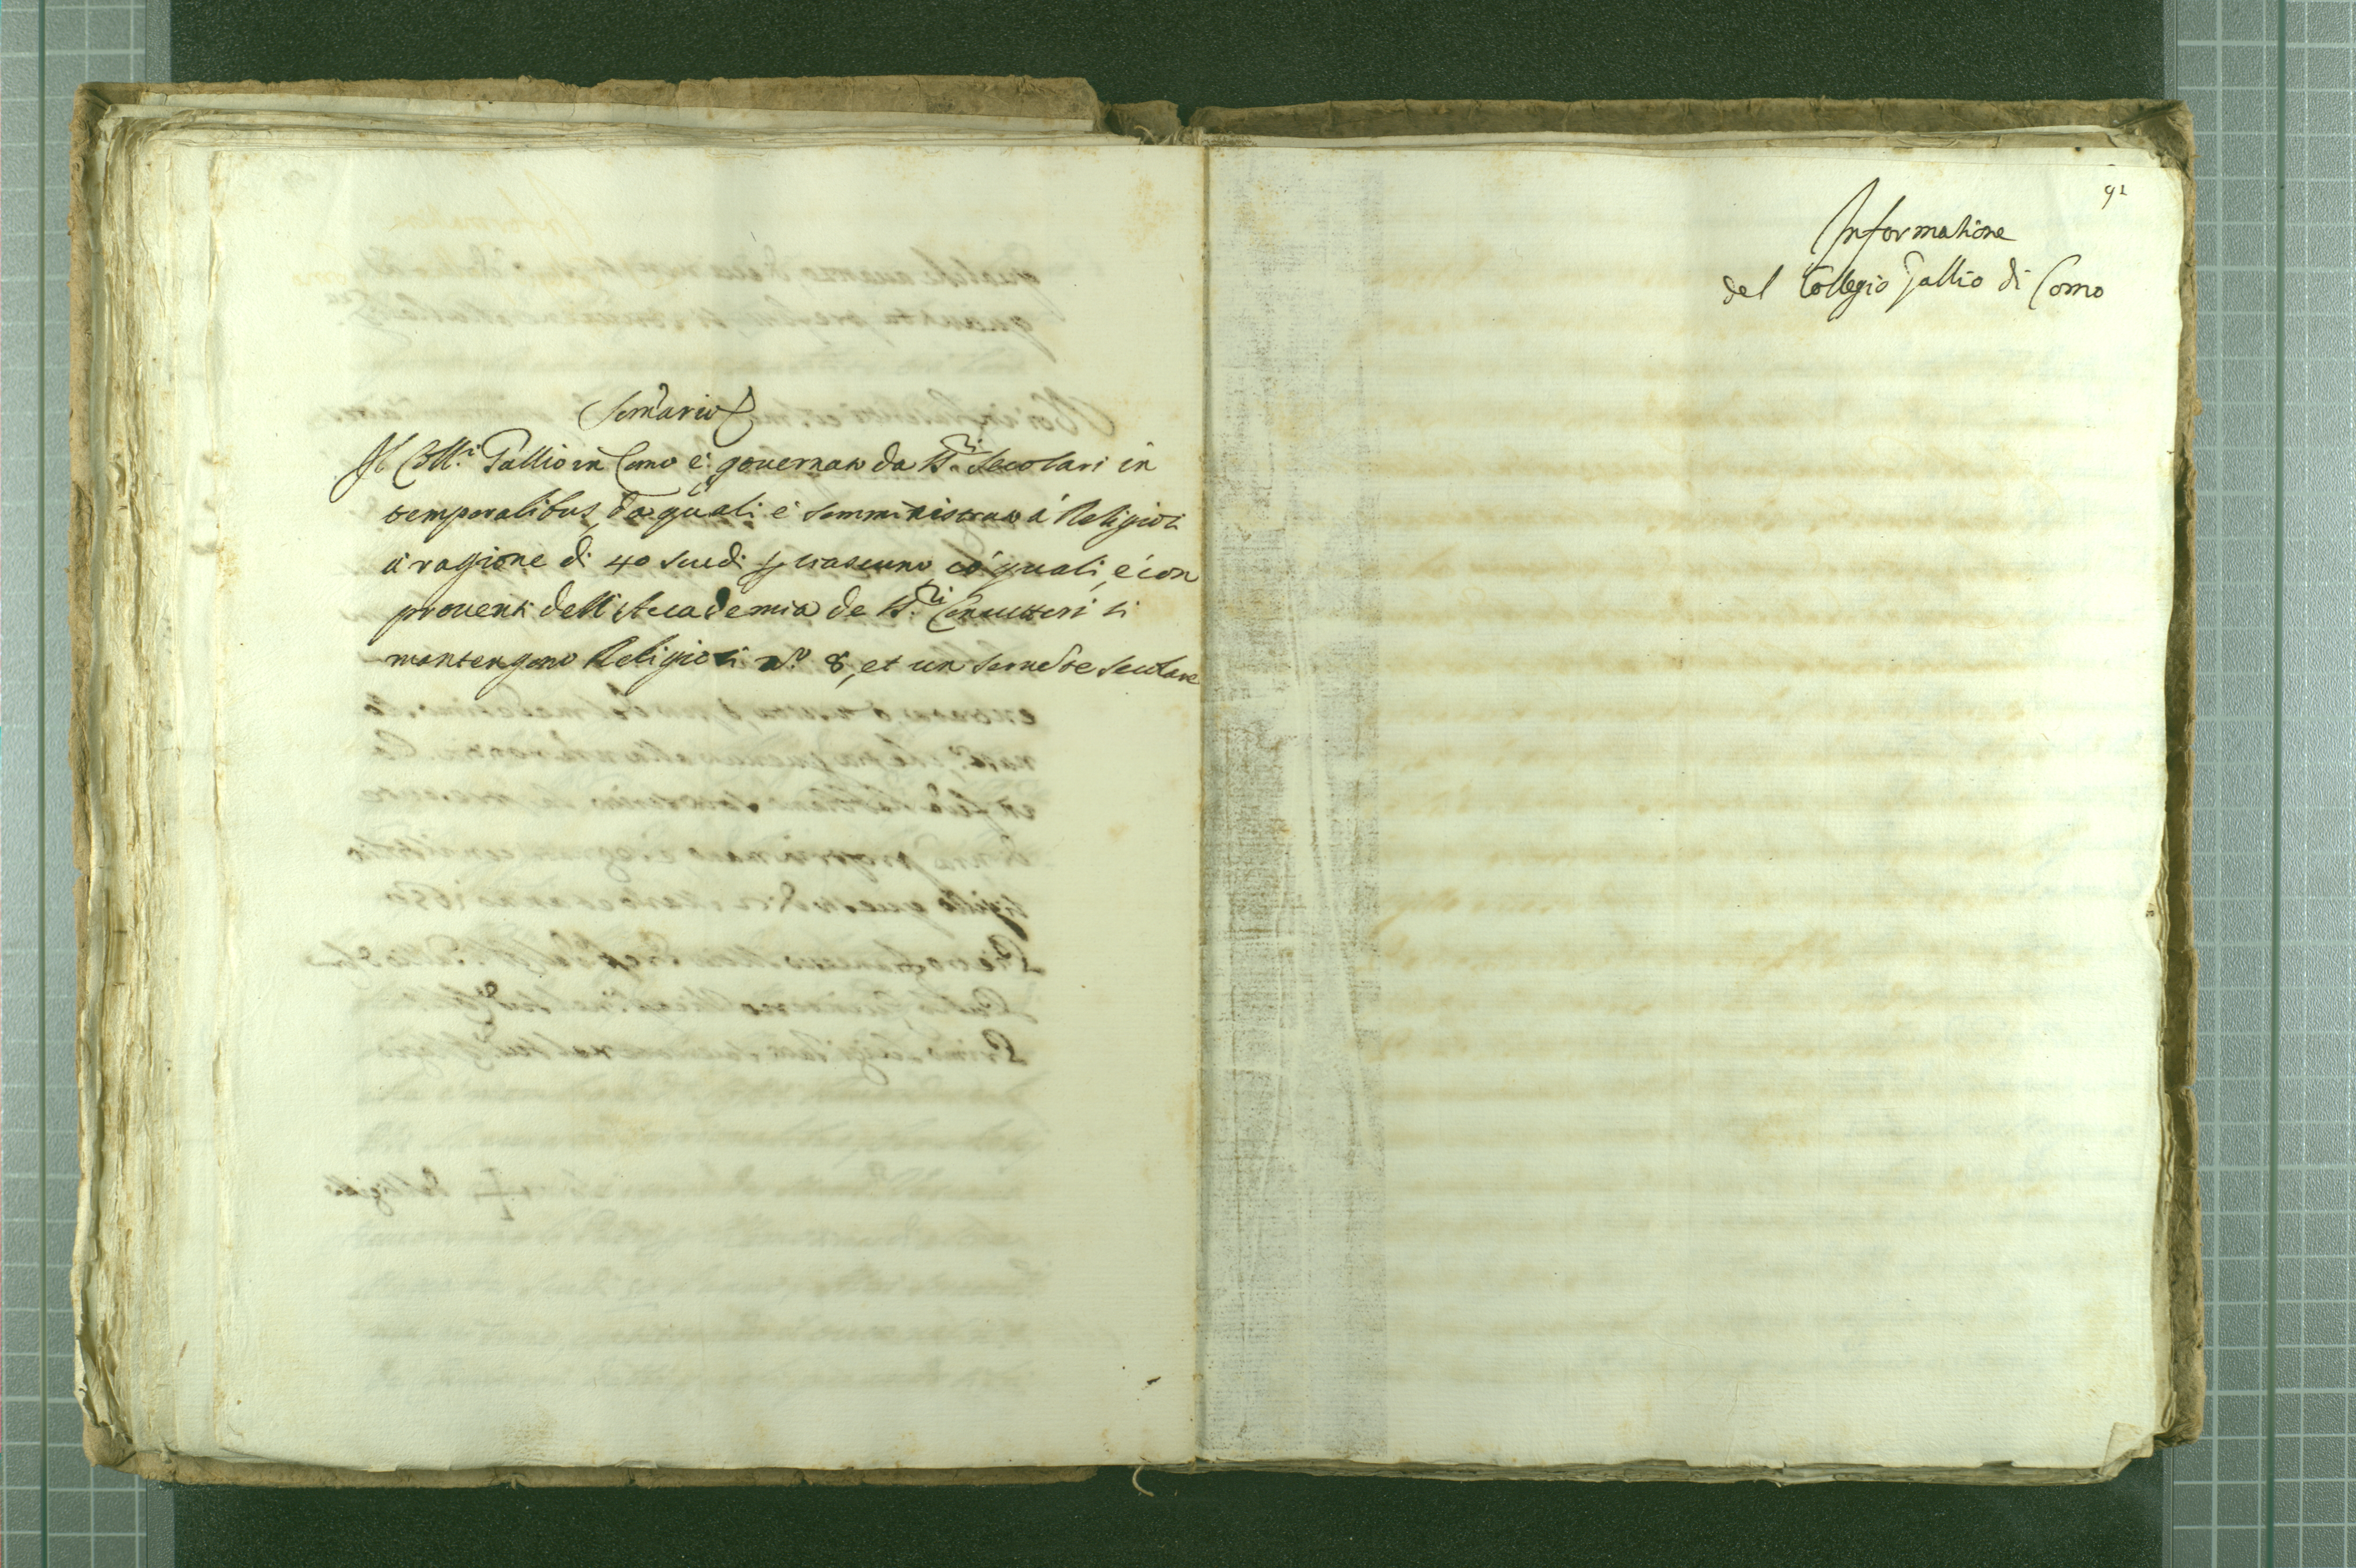 Som̃ario
Il Coll.º Gallio in Como è gouernato da SS.ri Secolari in
temporalibus, da quali è somministrato á Religiosi
á ragione di 40 scudi per ciascuno có quali, e con
prouenti dell'Accademia de SS.ri Conuittori si
mantengono Religiosi nº 8, et un seruitore secolare
92
Informatione
del Collegio Gallio di Como